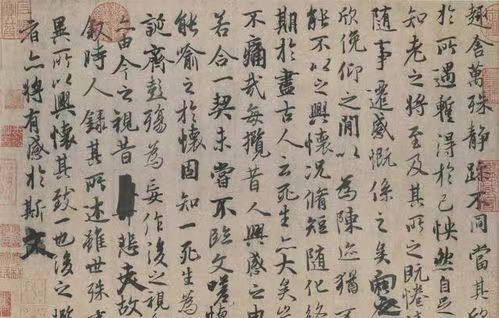 趣舍萬殊靜躁不同當其欣
於所遇暫得於己怏然自足
知老之將至及其所之既惓情
隨事遷感慨係之矣向之
欣俛仰之閒以為陳迹猶不
能不以之興懷況脩短隨化終
期於盡古人云死生亦大矣豈
不痛哉每攬昔人興感之由
若合一契未嘗不臨文嗟悼
能喻之於懷固知一死生為
誕齊彭殤為妄作後之視
亦由今之視昔悲夫故
叙時人錄其所述雖世殊
異所以興懷其致一也後之攬
者亦將有感於斯文